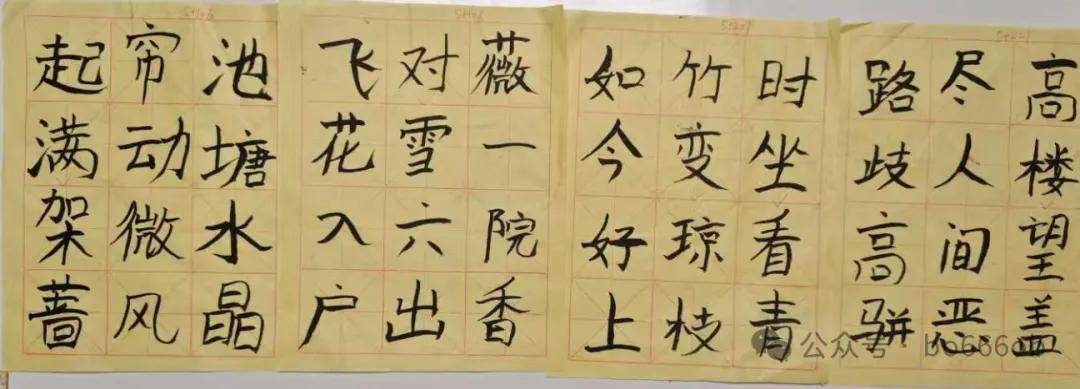 池塘水晶
帘动微风
起满架蔷
薇一院香
对雪六出
飞花入户
时坐看青
竹变琼枝
如今好上
高楼望盖
尽人间恶
路歧高骈
公众号